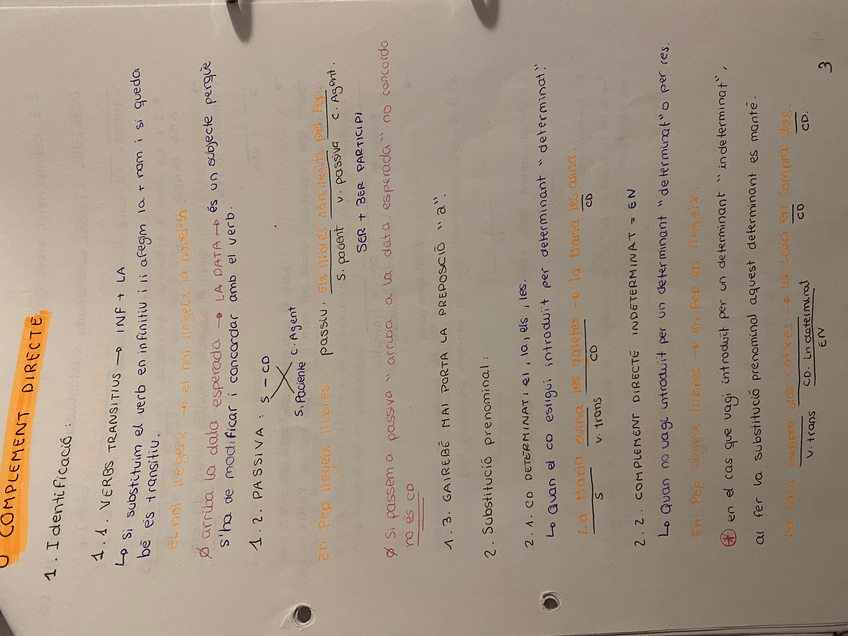 COMPLEMENT DIRECTE
1. Identificació:
1.1. VERBS TRANSITIUS → INF + LA
↳ Si substituim el verb en infinitiu i li afegim la + nom i si queda
bé és transitiu.
El noi llegeix → el noi llegeix la novel·la
Ø arriba la data esperada → LA DATA → és un subjecte perquè
s'ha de modificar i concordar amb el verb.
1.2. PASSIVA: S - CD
S. Paciente C. Agent
En Pep llegeix llibres. passiu. Els llibres són llegits per Pep.
S. pacient v. passiva C. Agent.
SER + 3ER PARTICIPI
Ø Si passem a passiva "arriba a la data esperada" no concorda
no és CD
1.3. GAIREBÉ MAI PORTA LA PREPOSCIÓ "a".
2. Substitució prenominal:
2.1. CD DETERMINAT: el, la, els, les.
↳ Quan el CD estigui introduït per determinant "determinat".
La Maria cuina les galetes → la Maria les cuina.
S v. trans CD CD
2.2. COMPLEMENT DIRECTE INDETERMINAT = EN
↳ Quan no vagi introduït per un determinant "determinat" o per res.
En Pep llegeix llibres → en Pep en llegeix.
* en el cas que vagi introduït per un determinant "indeterminat",
al fer la substitució prenominal aquest determinant es manté.
La Laia compra dos cotxes → la Laia en compra dos.
v. trans CD. indeterminat CD CD.
EN
3